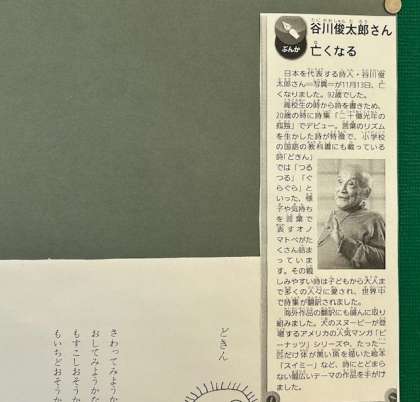 谷川俊太郎さん
亡くなる
ぶんか
日本を代表する詩人・谷川俊
太郎さん=写真=が11月13日、亡
くなりました。92歳でした。
高校生の時から詩を書きため、
20歳の時に詩集「二十億光年の
孤独」でデビュー。言葉のリズム
を生かした詩が特徴で、小学校
の国語の教科書にも載っている
詩「どきん」
では「つる
つる」「ぐ
らぐら」と
いった、様
子や気持ち
を言葉で
表すオノ
マトペがた
くさん詰ま
っていま
す。その親
しみやすい詩は子どもから大人ま
で多くの人々に愛され、世界中
で詩集が翻訳されました。
海外作品の翻訳にも盛んに取り
組みました。犬のスヌーピーが登
場するアメリカの人気マンガ「ピ
ーナッツ」シリーズや、たった一
匹だけ体が黒い魚を描いた絵本
「スイミー」など、詩にとどまら
ない幅広いテーマの作品を手がけ
ました。
どきん
さわってみようか
おしてみようかな
もすこしおそうか
もいちどおそうか